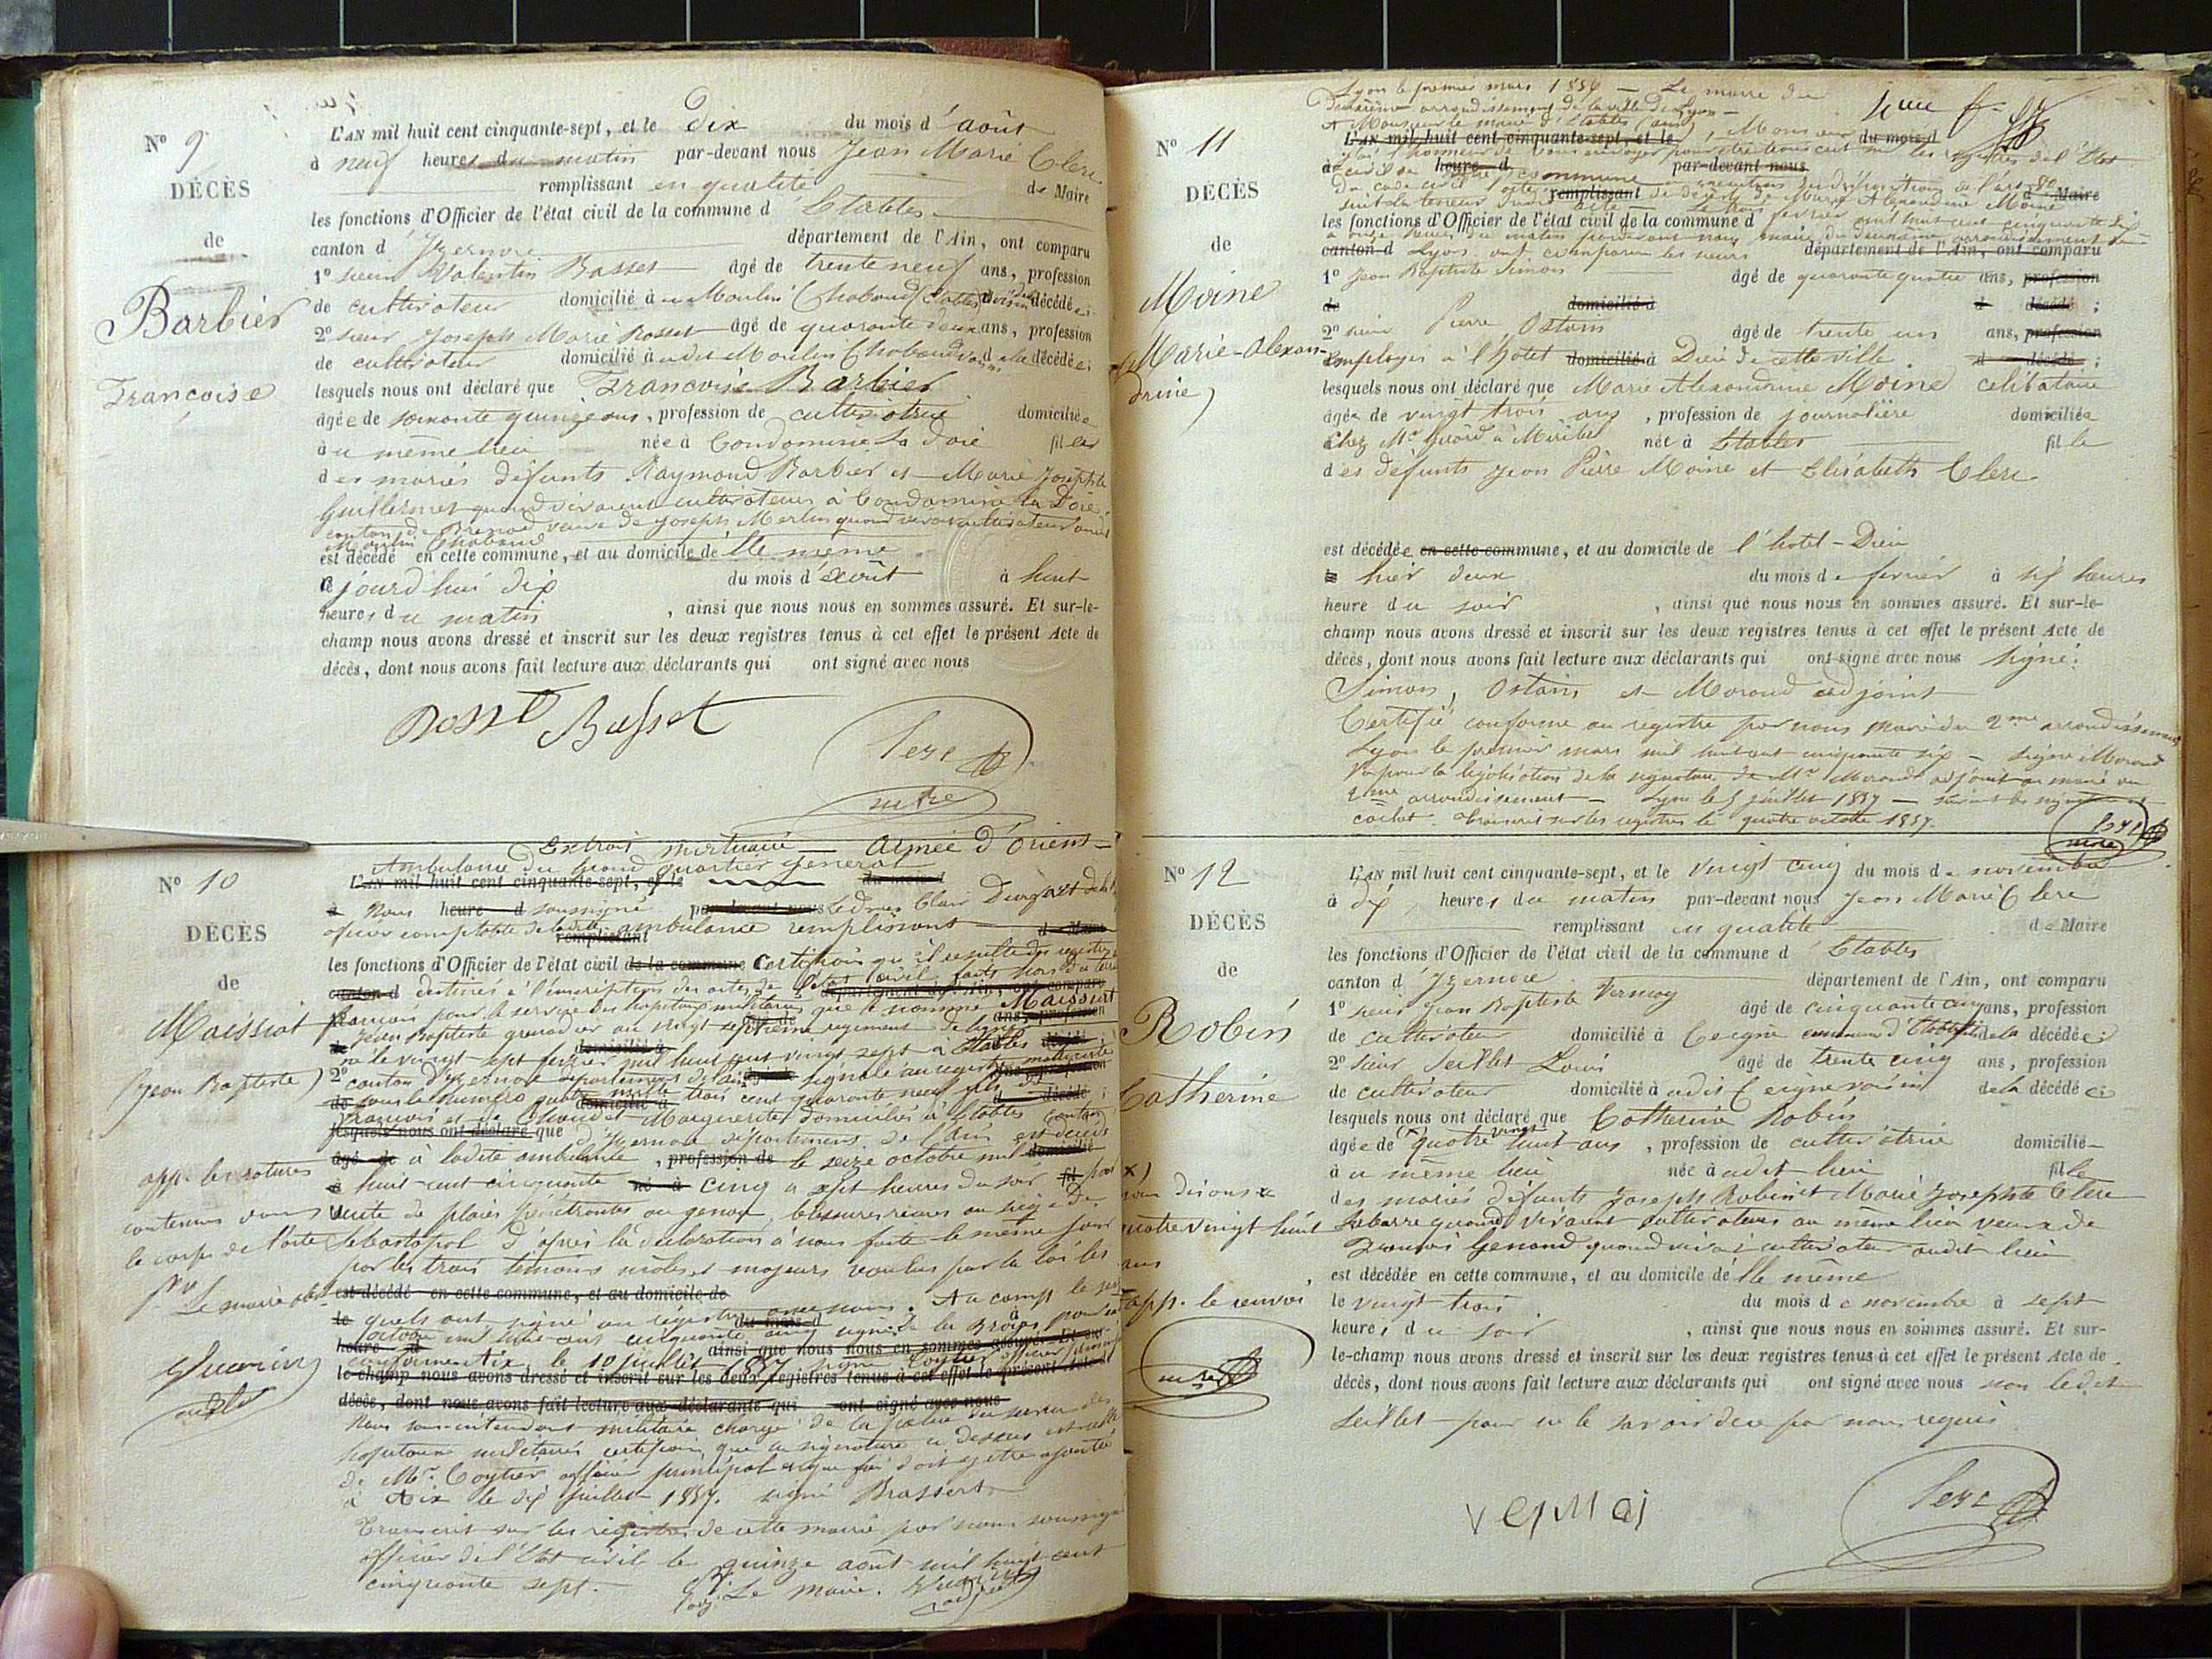 N° 9
DÉCÈS
de
Barbier
Francoise
L'AN mil huit cent cinquante-sept, et le dix du mois d'août
à neuf heures du matin par-devant nous Jean Marie Clerc
remplissant en qualité de Maire
les fonctions d'Officier de l'état civil de la commune d'Etables
canton d'Izernore département de l'Ain, ont comparu
1° sieur Valentin Basset âgé de trente neuf ans, profession
de cultivateur domicilié à au Moulin Chabaud Etables voisin décédée;
2° sieur Joseph Marie Rosset âgé de quarante deux ans, profession
de cultivateur domicilié à udit Moulin Chabaud voisin de la décédée;
lesquels nous ont déclaré que Francoise Barbier
âgée de soixante quinze ans, profession de cultivatrice domiciliée
à u même lieu née à Condamine la Doie fille
des mariés défunts Raymond Barbier et Marie Josephte
Guillermet quand vivaient cultivateurs à Condamine la Doie,
canton de Brenod veuve de Joseph Merlin quand vivait cultivateur audit
Moulin Chabaud
est décédé en cette commune, et au domicile de Elle même
cejourd'hui dix du mois d'août à huit
heures du matin, ainsi que nous nous en sommes assuré. Et sur-le-
champ nous avons dressé et inscrit sur les deux registres tenus à cet effet le présent Acte de
décès, dont nous avons fait lecture aux déclarants qui ont signé avec nous
Rosset Basset
Clerc
mre
N° 10
DÉCÈS
de
Maissiat
(Jean Baptiste)
app. les ratures
contenues dans
le corps de l'acte
pr Le maire abst
Guarin
adjt
Extrait mortuaire — Armée d'Orient —
Ambulance du Grand quartier General
L'AN mil huit cent cinquante-sept, et le du mois d
à Nous heure d soussigné par-devant nous
officier comptable de ladite ambulance remplissant d Maire
remplissant
les fonctions d'Officier de l'état civil de la commune Certifions qu'il resulte des registres
canton d destinés à l'inscription des actes de l'Etat Civil faits hors du terre
département de l'Ain, ont comparu
francais pour le service des hopitaux militaires que le nommé Maissiat
Jean Baptiste grenadier au vingt septieme regiment de ligne
né le vingt sept fevrier mil huit cent vingt sept à Etables
2° canton d'Izernore departement de l'Ain signalé au registre matricule
sous le numero quatre mille trois cent quarante neuf fils de
François et de Chaudet Marguerite domiciliés à Etables canton
lesquels nous ont déclaré que d'Izernore departement de l'Ain est decédé
âgé de à ladite ambulance, profession de le seize octobre mil domicilié
à huit cent cinquante né à cinq a sept heures du soir fil par
suite de plaies pénétrantes au genou, blessures recues au siege de
Sebastopol D'après la declaration à nous faite le même jour
par les trois temoins mâles et majeurs voulus par la loi les
est décédé en cette commune, et au domicile de
le quels ont signé au registre avec nous. Au camp le
du mois d à
octobre mil huit cent cinquante cinq signé
heure d ainsi que nous nous en sommes assuré. Et sur-
conforme Aix, le 10 juillet 1857 signé Coytier officier principal
le-champ nous avons dressé et inscrit sur les deux registres tenus à cet effet le présent Acte de
décès, dont nous avons fait lecture aux déclarants qui ont signé avec nous
Nous sous-intendant militaire chargé de la police du service des
hopitaux militaires certifions que la signature ci dessus est celle
de Mr Coytier officier principal et que foi doit y etre ajoutée
à Aix le dix juillet 1857. signé Brassert
Transcrit sur les registres de cette mairie par nous soussigné
officier de l'Etat civil le quinze août mil huit cent
cinquante sept.
Le maire. Guarin
adjoint
N° 11
DÉCÈS
de
Moine
(Marie-Alexan-
drine)
Lyon le premier mars 1856 — Le maire du
deuxième arrondissement de la ville de Lyon —
A Monsieur le maire d'Etables (ain)
L'AN mil huit cent cinquante-sept, et le, Monsieur du mois d
j'ai l'honneur de vous envoyer pour être transcrit sur les registres de l'Etat
à civil de heure d commune par-devant nous
du code civil l'acte remplissant de décès de Marie Alexandrine Moine d Maire
les fonctions d'Officier de l'état civil de la commune d
à onze heures du matin pardevant nous maire du deuxième arrondissement de
canton d Lyon ont comparu les sieurs département de l'Ain, ont comparu
1° Jean Baptiste Simon âgé de quarante quatre ans, profession
de domicilié à d décédé;
2° sieur Pierre Ostain âgé de trente un ans, profession
employés à l'hotel domicilié à Dieu de cette ville d décédé;
lesquels nous ont déclaré que Marie Alexandrine Moine célibataire
âgée de vingt trois ans, profession de journalière domiciliée
Chez Mr Guard à Miribel née à Etables fille
des défunts Jean Pierre Moine et Elisabeth Clerc
est décédée en cette commune, et au domicile de l'hotel-Dieu
le hier deux du mois de fevrier à sif heures
heure du soir, ainsi que nous nous en sommes assuré. Et sur-le-
champ nous avons dressé et inscrit sur les deux registres tenus à cet effet le présent Acte de
décès, dont nous avons fait lecture aux déclarants qui ont signé avec nous Signé:
Simon, Ostain et Morand adjoint
Certifié conforme au registre par nous maire du 2me arrondissement
Lyon le premier mars mil huit cent cinquante six — signé Morand
Vu pour la légalisation de la signature de Mr Morand adjoint au maire du
2me arrondissement — Lyon le 5 juillet 1857 —
cachet. Transcrit sur les registres le quatre octobre 1857.
Clerc
mre
N° 12
DÉCÈS
de
Robin
Catherine
x)
nous disons
quatre vingt huit
ans
app. le renvoi
mre
L'AN mil huit cent cinquante-sept, et le vingt cinq du mois de novembre
à dix, heures du matin par-devant nous Jean Marie Clerc
remplissant en qualité de Maire
les fonctions d'Officier de l'état civil de la commune d'Etables
canton d'Izernore département de l'Ain, ont comparu
1° sieur Jean Baptiste Vernay âgé de cinquante cinq ans, profession
de cultivateur domicilié à Ceigne commune d'Etables de la décédée;
2° sieur Seillet Louis âgé de trente cinq ans, profession
de cultivateur domicilié à udit Ceigne voisin de la décédée;
lesquels nous ont déclaré que Catherine Robin
âgée de x quatre vingt huit ans, profession de cultivatrice domicilié
à u même lieu née à udit lieu fille
des mariés défunts Joseph Robin et Marie Josephte Clerc
Labarre quand vivaient cultivateurs au même lieu veuve de
François Genand quand vivait cultivateur audit lieu
est décédée en cette commune, et au domicile de Elle même
le vingt trois du mois de novembre à sept
heures du soir, ainsi que nous nous en sommes assuré. Et sur-
le-champ nous avons dressé et inscrit sur les deux registres tenus à cet effet le présent Acte de
décès, dont nous avons fait lecture aux déclarants qui ont signé avec nous non ledit
Seillet pour ne le savoir de ce par nous requis
Vernai
Clerc